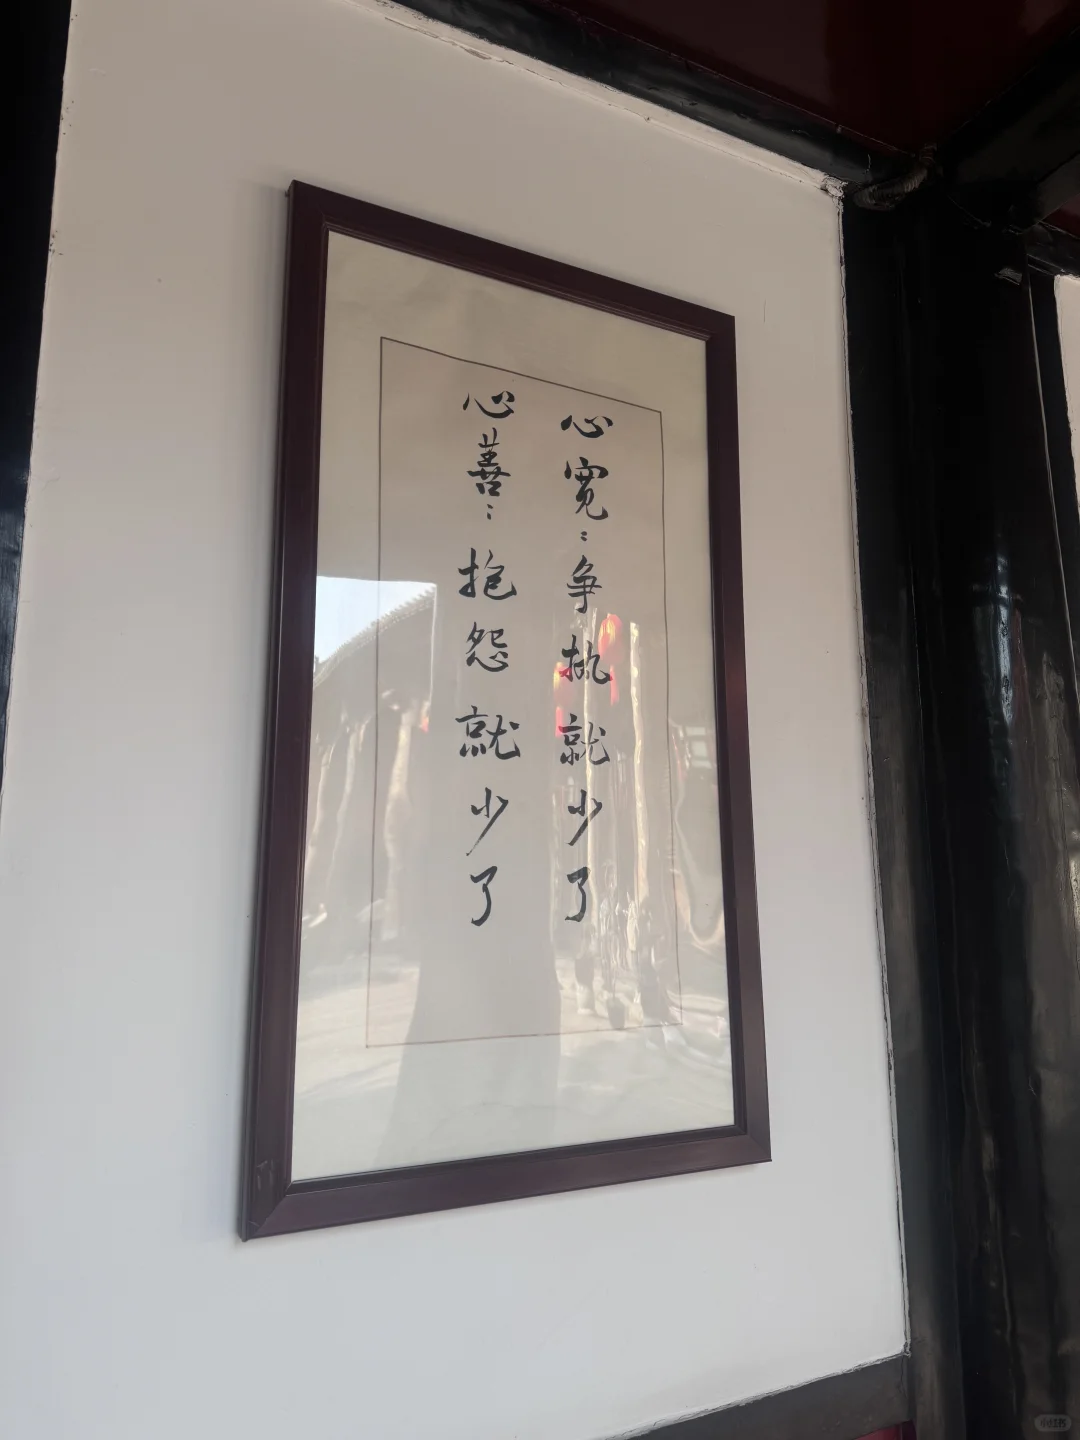 心宽：争执就少了
心善：抱怨就少了
小红书